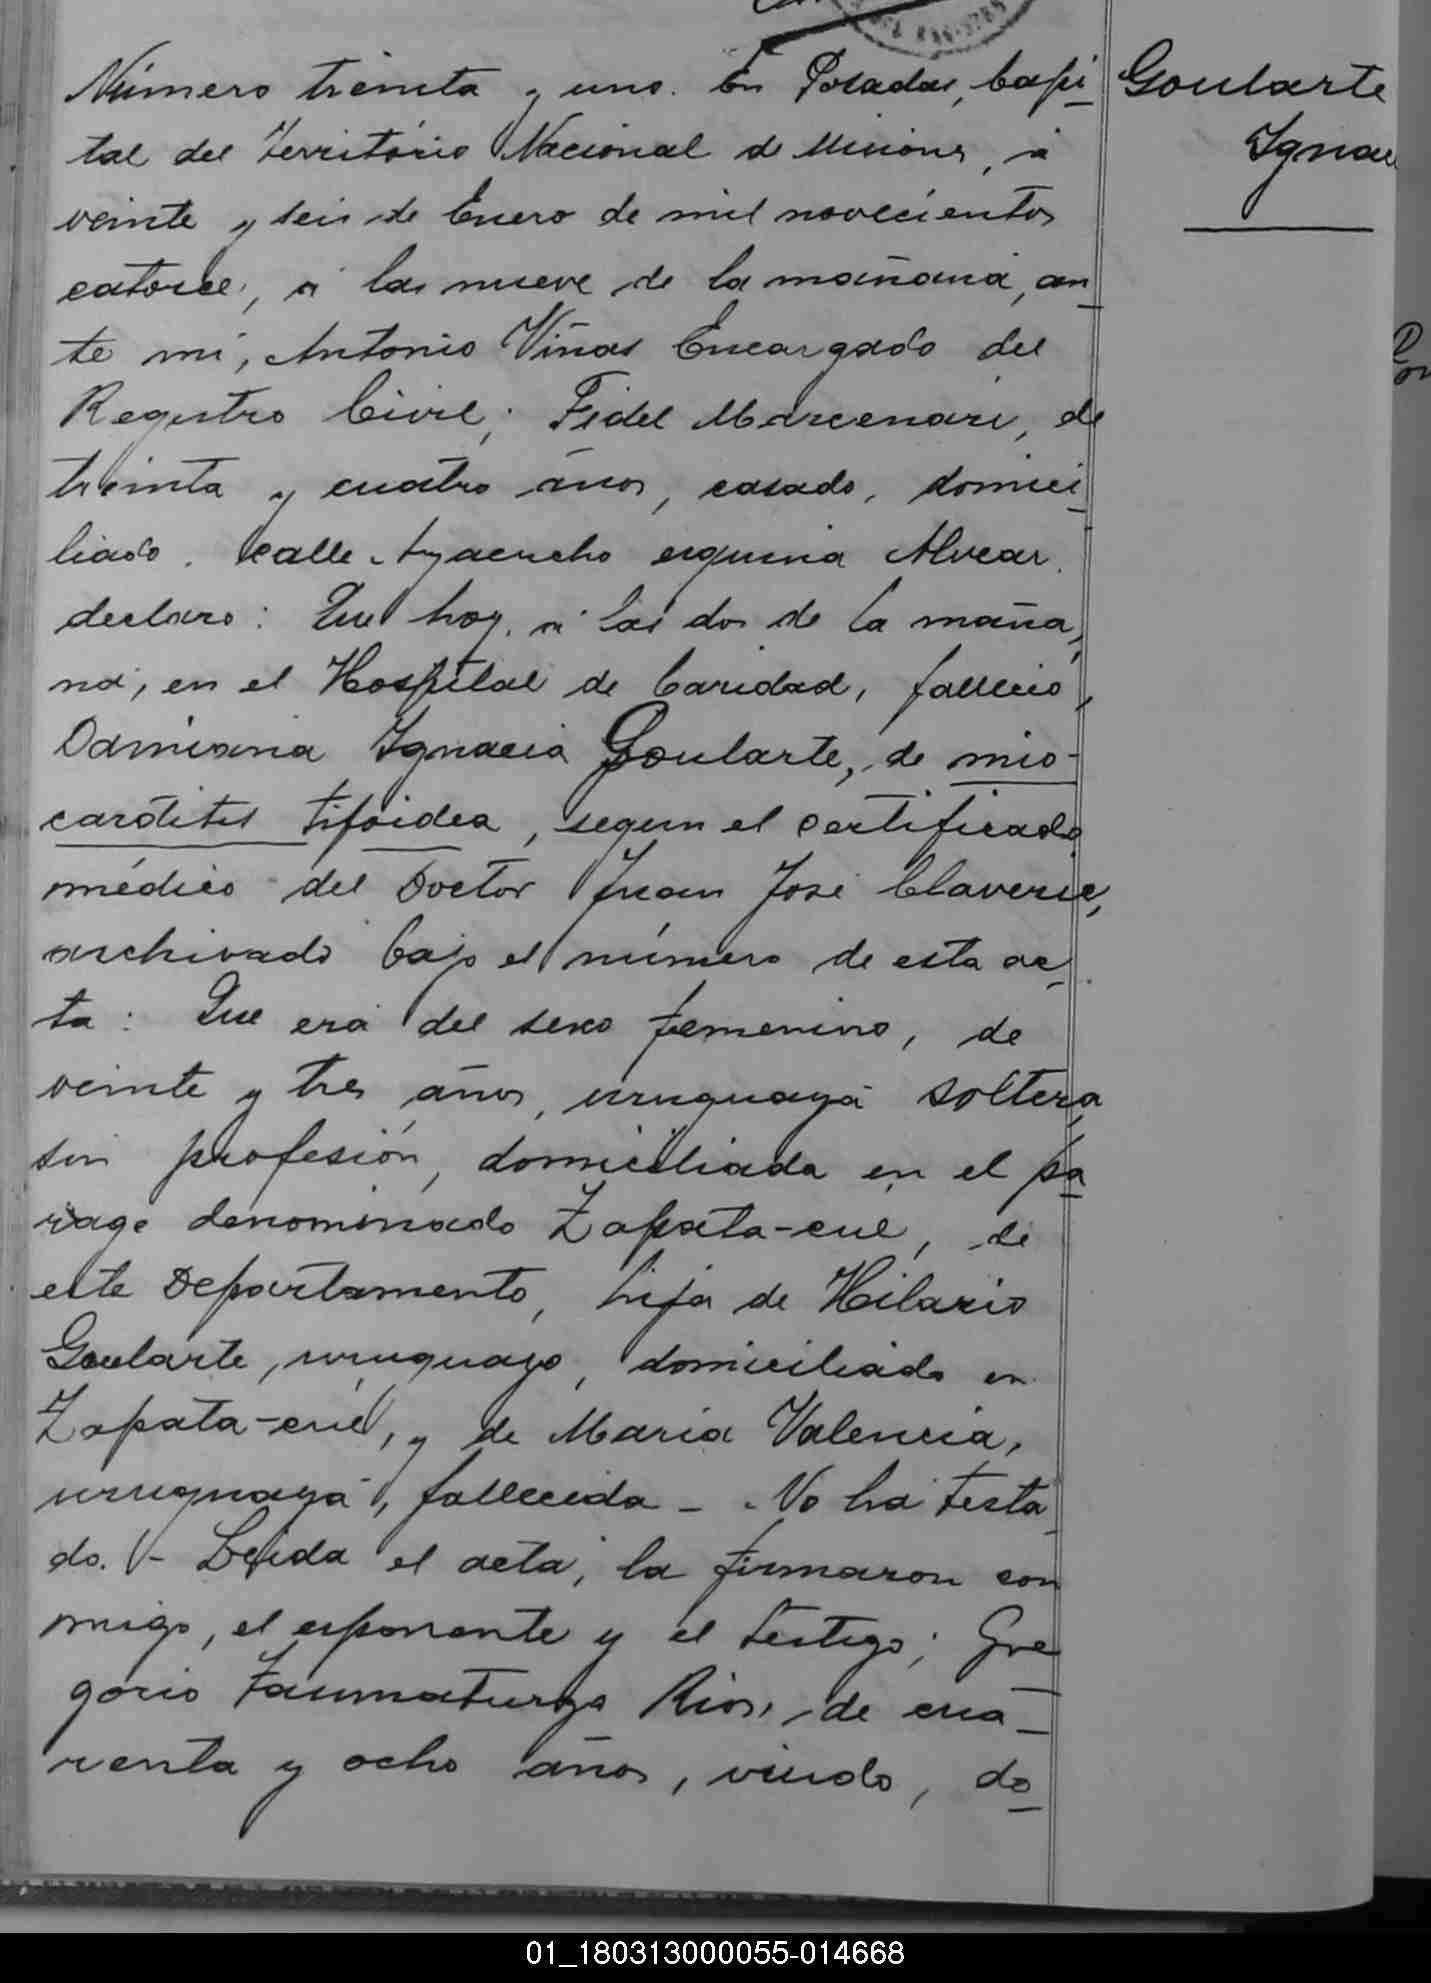 Número treinta y uno. En Posadas, Capi-
tal del Territorio Nacional de Misiones, á
veinte y seis de Enero de mil novecientos
catorce, á las nueve de la mañana, an-
te mí, Antonio Viñas Encargado del
Registro Civil; Fidel Marcenari, de
treinta y cuatro años, casado, domici-
liado, calle Ayacucho esquina Alvear,
declaro: Que hoy, á las dos de la maña-
na, en el Hospital de Caridad, falleció,
Damiana Ignacia Goularte, de mio-
carditis tifoidea, segun el certificado
médico del Doctor Juan José Claverie,
archivado bajo el número de esta ac-
ta: Que era del sexo femenino, de
veinte y tres años, uruguaya soltera,
sin profesión, domiciliada en el pa-
rage denominado Zapata-cué, de
este Departamento, hija de Hilario
Goularte, uruguayo, domiciliado en
Zapata-cué, y de Maria Valencia,
uruguaya, fallecida - No ha testa-
do. - Leida el acta, la firmaron con
migo, el esponente y el testigo; Gre-
gorio Taumaturgo Rios, de cua-
renta y ocho años, viudo, do-
Goularte
Ignac
01_180313000055-014668